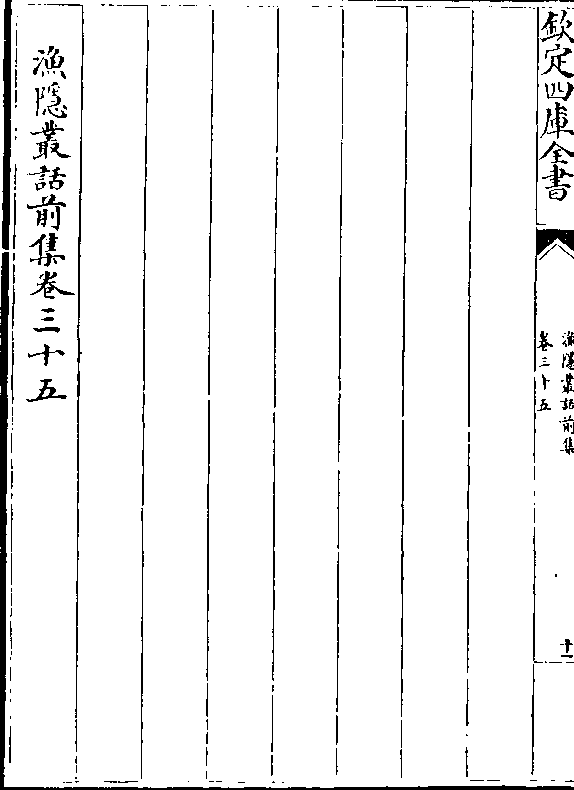 欽定四庫全書
漁隱叢話前集
卷三十五
十一
漁隱叢話前集卷三十五